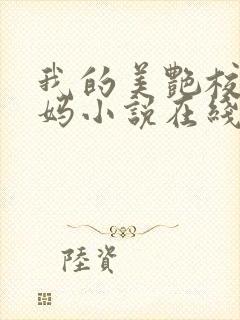 我的美艷校
妈小説在綫
陸資